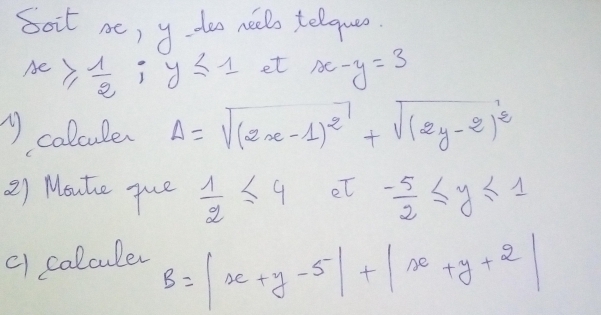 Soit x, y des réels telques.
x ≥ 1/2 ; y ≤ 1 et x-y=3
1) calculer A = √(2x-1)² + √(2y-2)²
2) Montre que 1/2 ≤ 4 et -5/2 ≤ y ≤ 1
c) calculer B = |x+y-5| + |x+y+2|